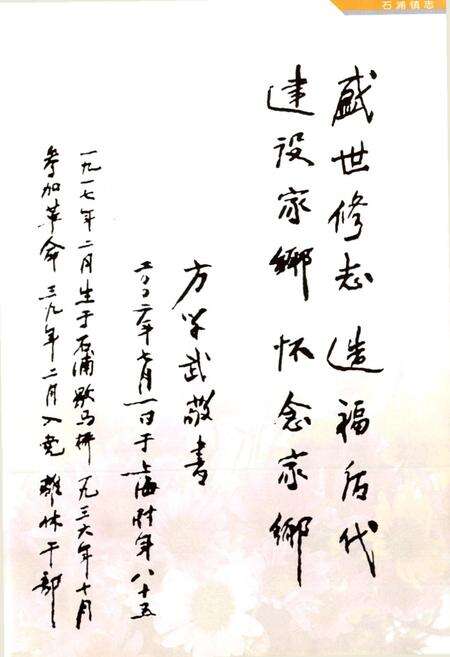 石浦镇志
盛世修志 造福后代
建设家鄉 怀念家鄉
方学武敬書
二〇〇二年七月一日于上海时年八十五
一九一七年二月生于石浦歇马桥 一九三六年十月
参加革命 三九年二月入党 離休干部